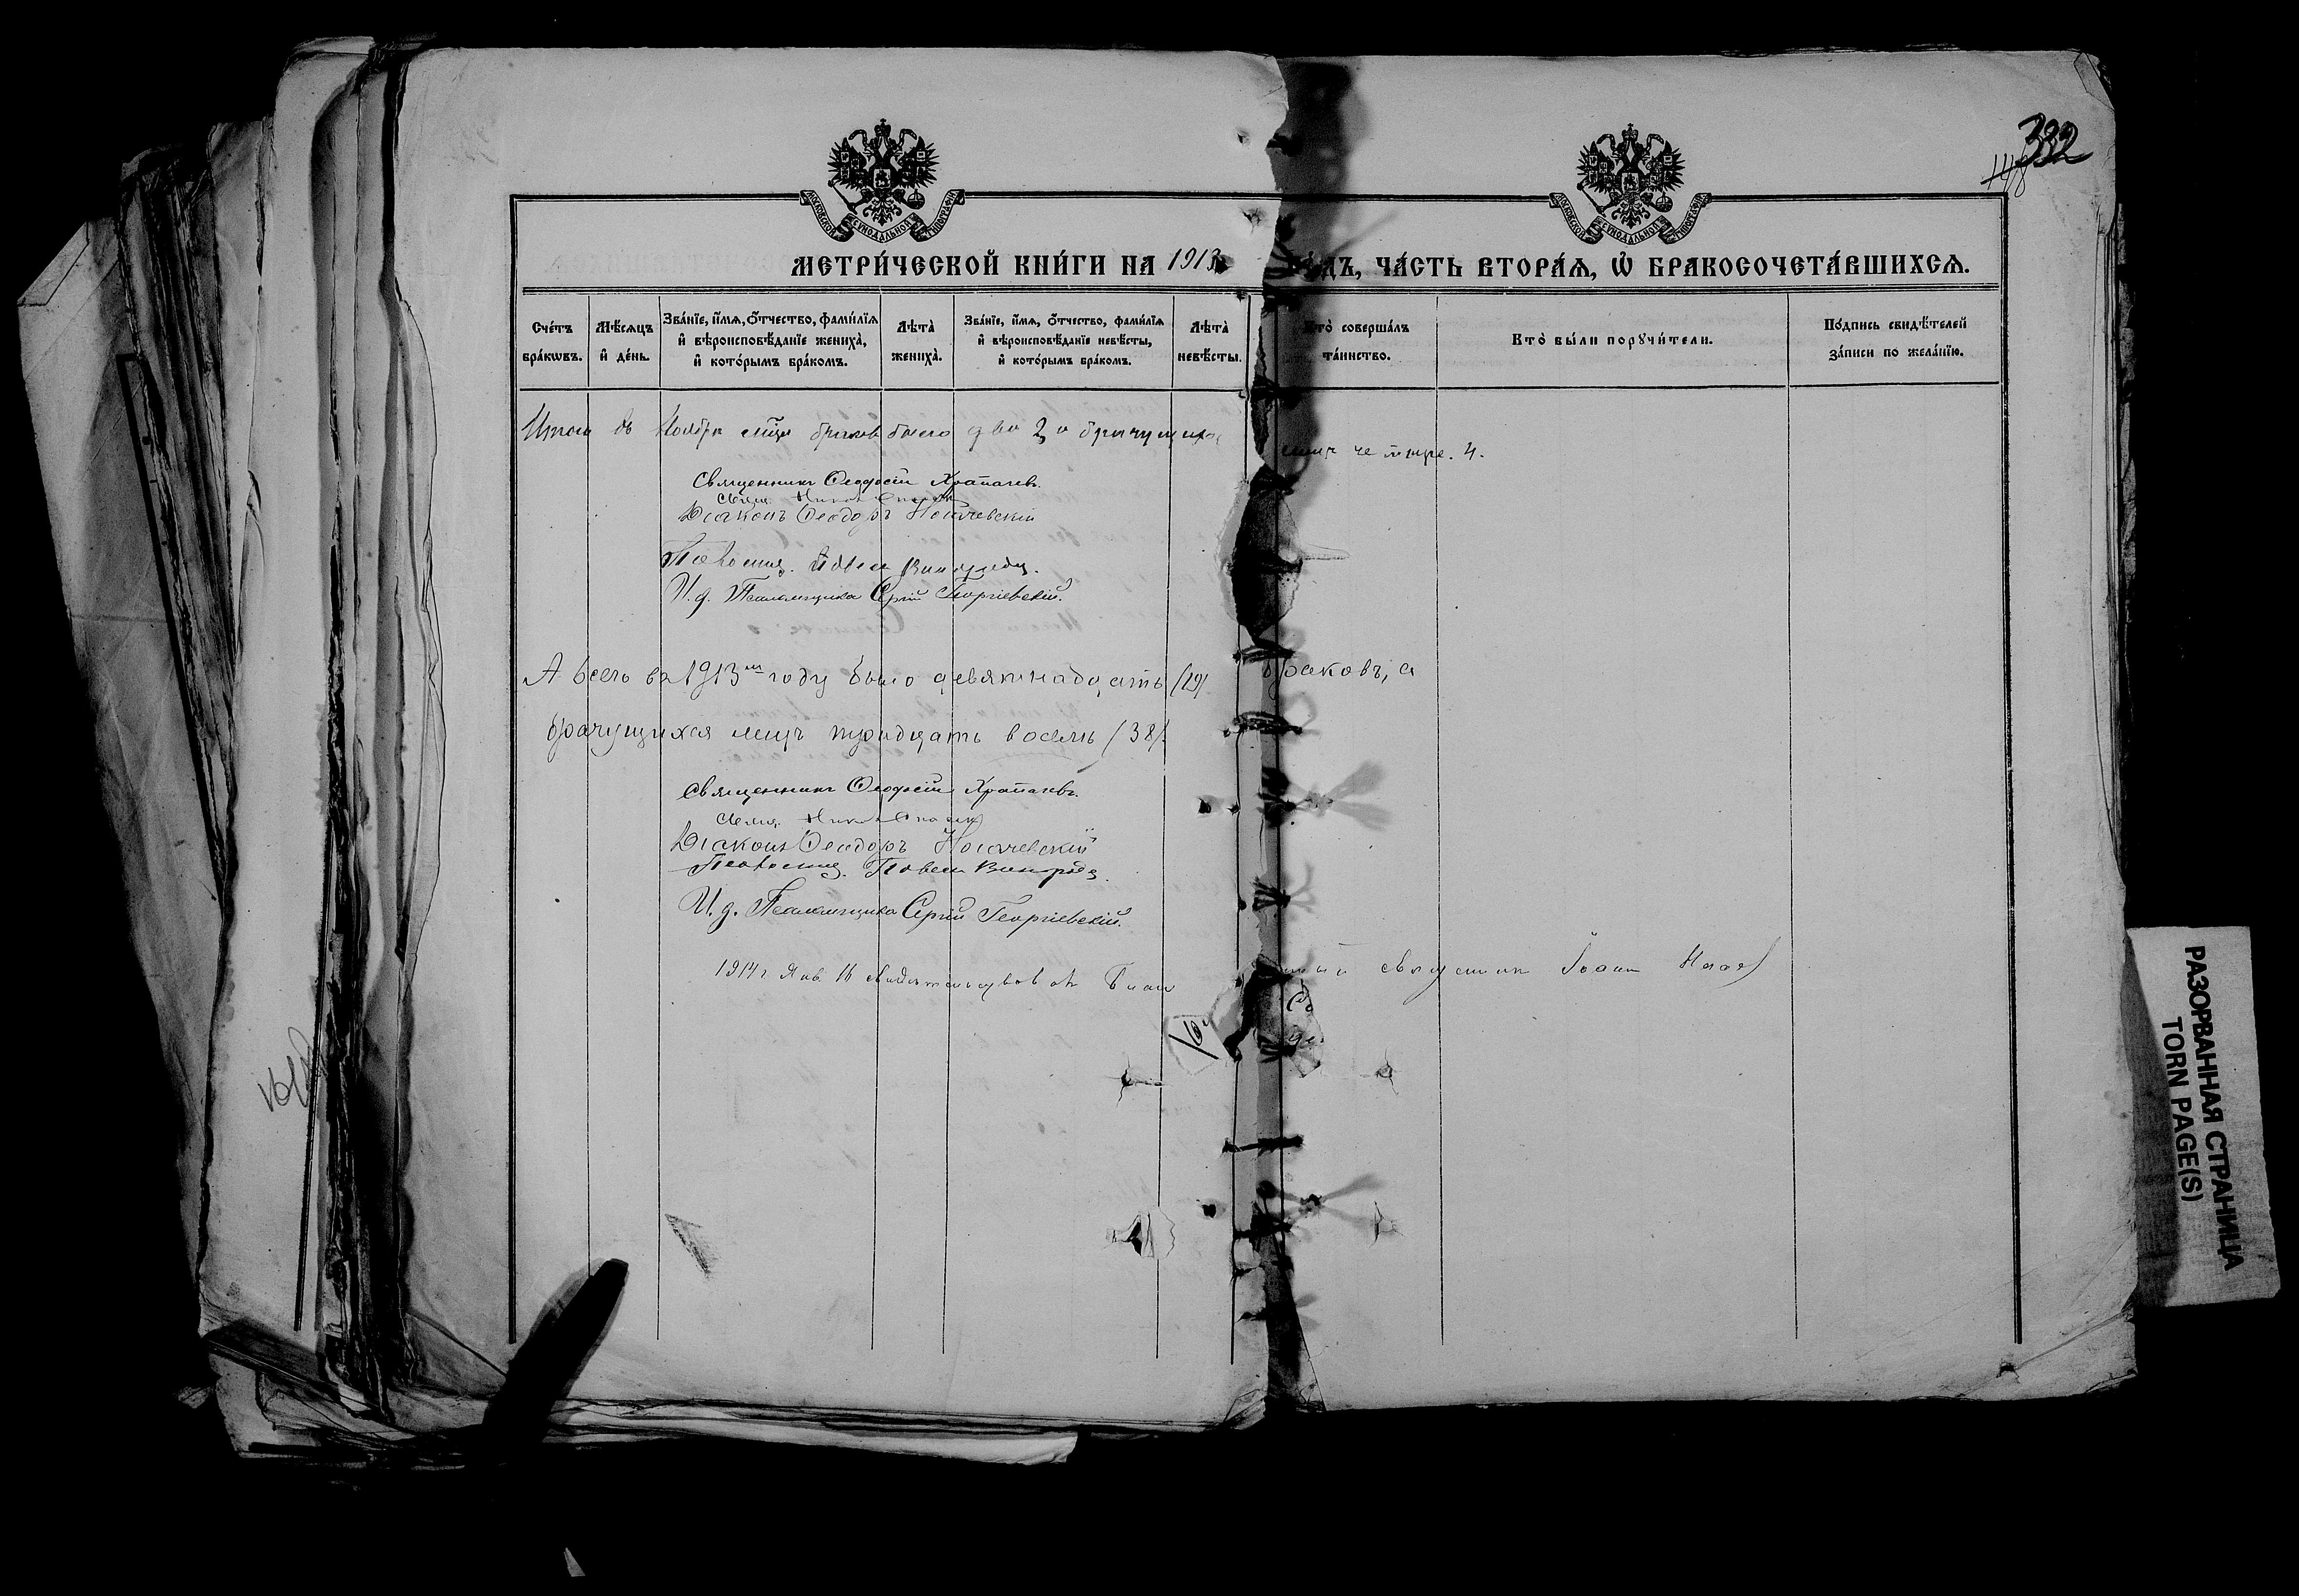 332
148
МОСКОВСКОЙ СУНОДАЛЬНОЙ ТИПОГРАФІИ
МОСКОВСКОЙ СУНОДАЛЬНОЙ ТИПОГРАФІИ
МЕТРИ́ЧЕСКОЙ КНИ́ГИ НА 1913 ДЪ, ЧА́СТЬ ВТОРА́Ѧ, Ѡ БРАКОСОЧЕТА́ВШИХСѦ.
Сче́тъ бра́кѡвъ.
Мѣ́сѧцъ и҆ де́нь.
Зва́нїе, и҆́мѧ, ѻ҆́тчество, фами́лїѧ и҆ вѣроисповѣ́данїе жениха̀, и҆ кото́рымъ бра́комъ.
Лѣта̀ жениха̀.
Зва́нїе, и҆́мѧ, ѻ҆́тчество, фами́лїѧ и҆ вѣроисповѣ́данїе невѣ́сты, и҆ кото́рымъ бра́комъ.
Лѣта̀ невѣ́сты.
Кто̀ соверша́лъ та́инство.
Кто̀ бы́ли порꙋчи́тели.
По́дпись свидѣ́телей за́писи по жела́нїю.
Итого въ Ноябрѣ м̃цѣ браковъ было два 2, а брачущихся лицъ четыре. 4.
Священникъ Ѳеодосій
Діаконъ Ѳеодоръ Носачевскій
И. д. Псаломщика Сергій Георгіевскій.
А всего въ 1913м году было девятнадцать (19) браковъ, а
брачущихся лицъ тридцать восемь (38).
Священникъ Ѳеодосій
Діаконъ Ѳеодоръ Носачевскій
Павелъ
И. д. Псаломщика Сергій Георгіевскій.
1914 г Янв. 16 свидѣтельствовалъ священникъ Іоаннъ
РАЗОРВАННАЯ СТРАНИЦА
TORN PAGE(S)